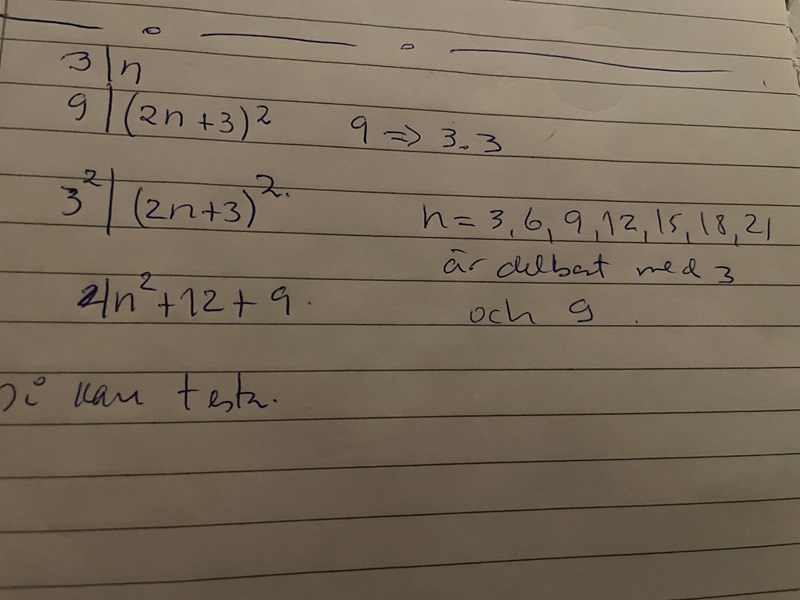 3|n
9|(2n+3)² 9 => 3.3
3²|(2n+3)².
n = 3, 6, 9, 12, 15, 18, 21
är delbart med 3
4n²+12+9.
och 9.
kan testa.